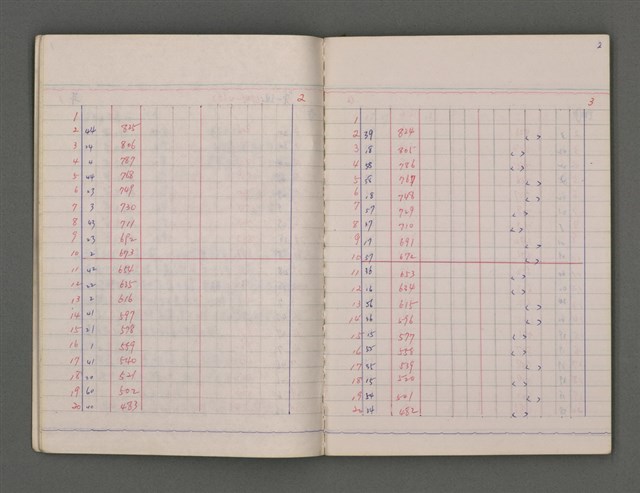 2
1
2 44 825
3 24 806
4 4 787
5 44 768
6 23 749
7 3 730
8 43 711
9 23 692
10 2 673
11 42 654
12 22 635
13 2 616
14 41 597
15 21 578
16 1 559
17 41 540
18 20 521
19 60 502
20 483
2
3
1
2 39 824 < >
3 18 805 < >
4 38 786 < >
5 58 767 < >
6 18 748 < >
7 57 729 < >
8 37 710 < >
9 17 691 < >
10 57 672 < >
11 36 653 < >
12 16 634 < >
13 56 615 < >
14 36 596 < >
15 15 577 < >
16 55 558 < >
17 35 539 < >
18 15 520 < >
19 54 501 < >
20 34 482 < >